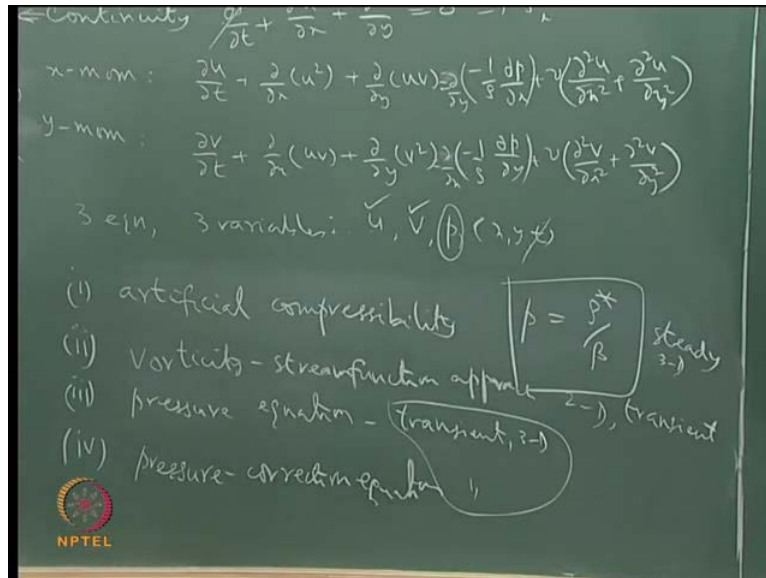 Continuity ∂ρ/∂t + ∂u/∂x + ∂v/∂y = 0
x-mom: ∂u/∂t + ∂/∂x (u²) + ∂/∂y (uv) = ∂/∂y (-1/ρ ∂p/∂x) + ν(∂²u/∂x² + ∂²u/∂y²)
y-mom: ∂v/∂t + ∂/∂x (uv) + ∂/∂y (v²) = ∂/∂x (-1/ρ ∂p/∂y) + ν(∂²v/∂x² + ∂²v/∂y²)
3 eqn, 3 variables: u, v, p (x, y, t)
(i) artificial compressibility p = ρ*/β steady 3-D
(ii) Vorticity - streamfunction 2-D, transient
(iii) pressure equation - transient, 3-D
(iv) pressure-correction equation "
NPTEL